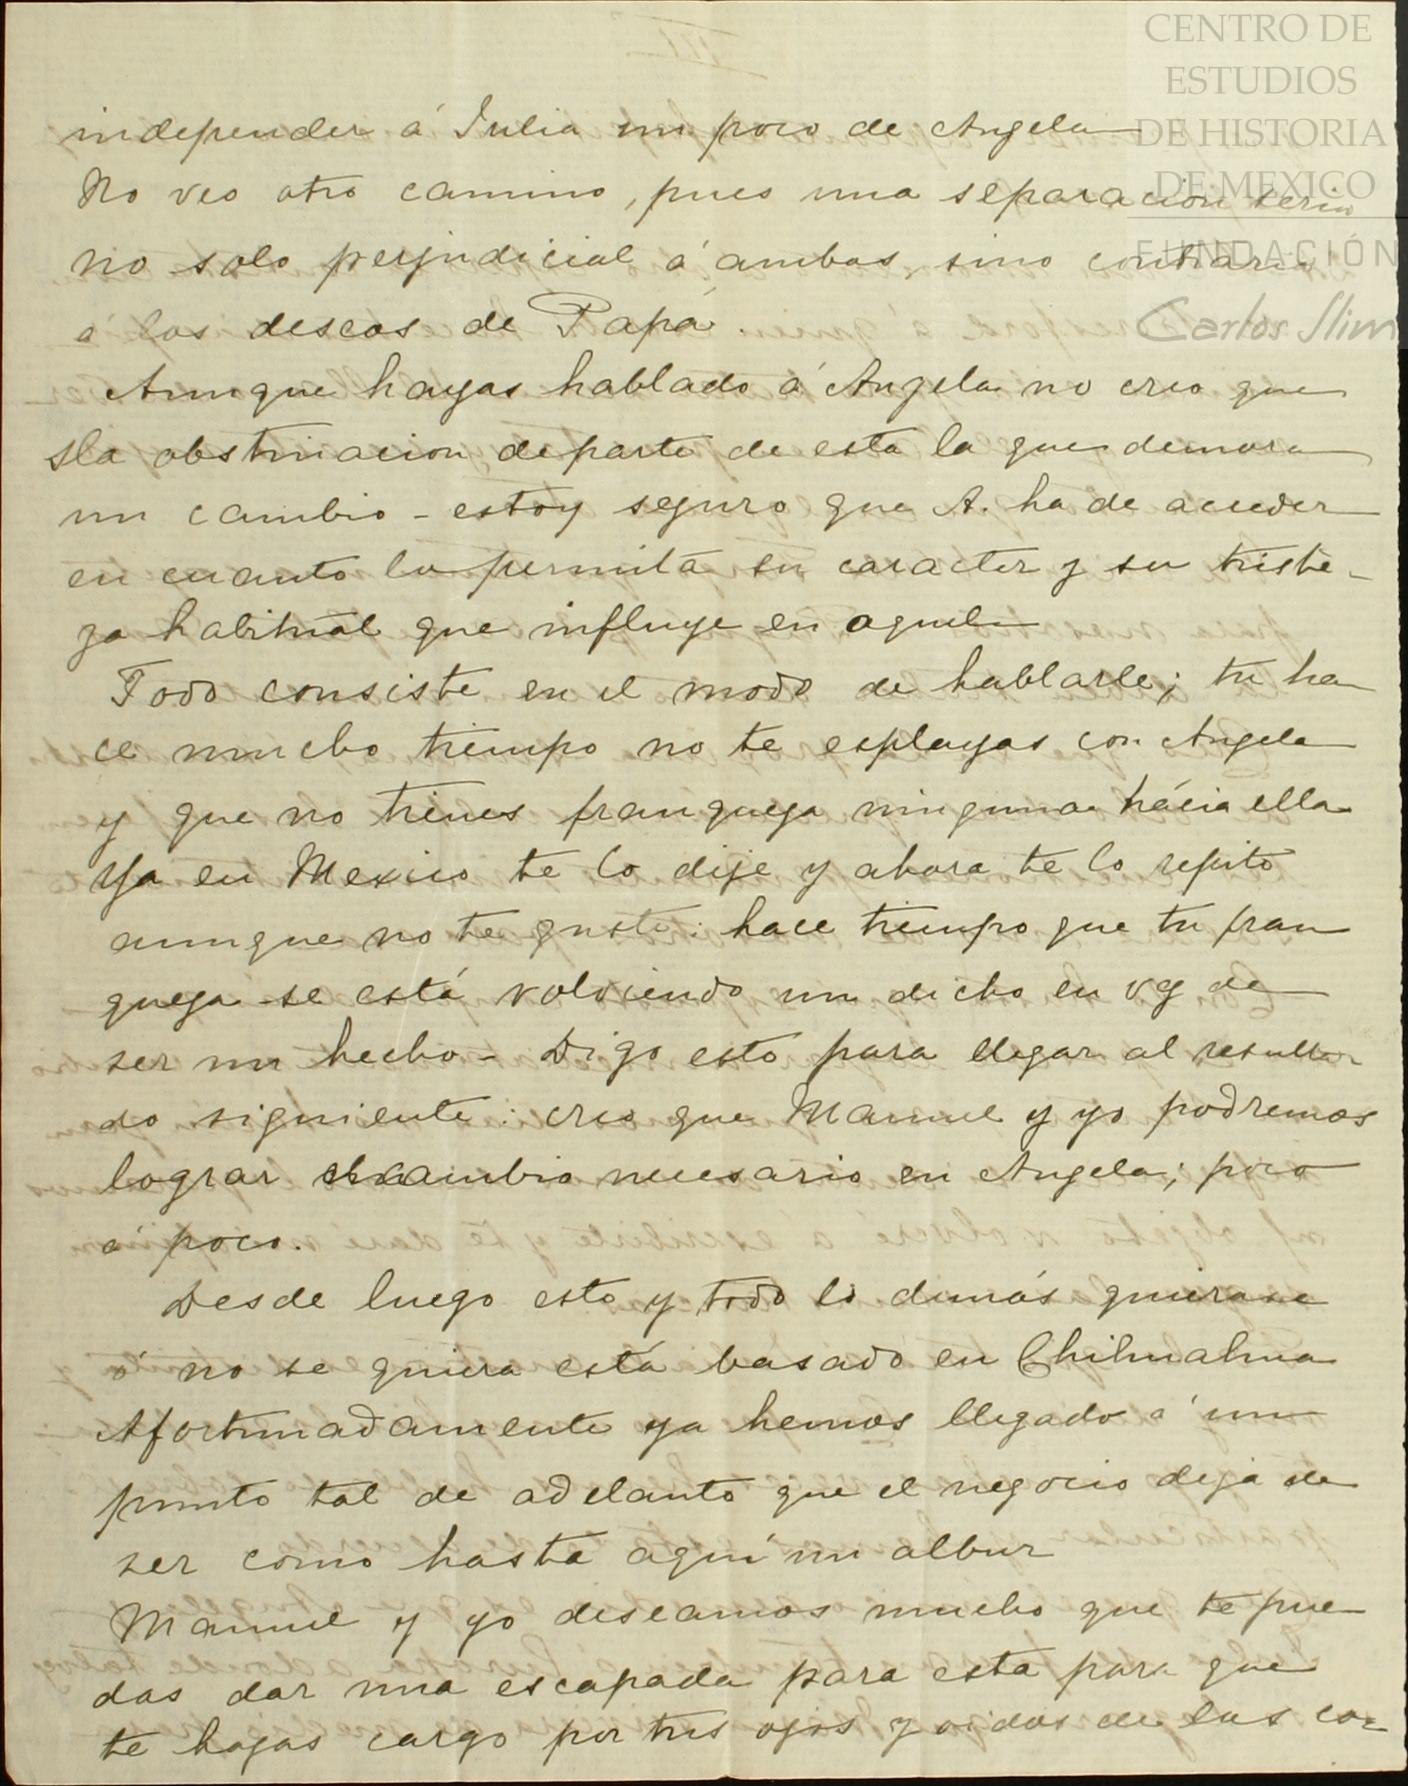 CENTRO DE
ESTUDIOS
DE HISTORIA
DE MEXICO
FUNDACIÓN
Carlos Slim
independer á Julia un poco de Angela
No veo otro camino, pues una separacion seria
no solo perjudicial á ambas, sino contrario
á los deseos de Papá.
Aunque hayas hablado á Angela no creo que
sla obstinacion de parte de esta la que demora
un cambio - estoy seguro que A. ha de acceder
en cuanto lo permita su caracter y su triste-
za habitual que influye en aquel
Todo consiste en el modo de hablarle; tu ha
ce mucho tiempo no te esplayas con Angela
y que no tienes franqueza ninguna hácia ella
Ya en Mexico te lo dije y ahora te lo repito
aunque no te guste: hace tiempo que tu fran
queza se está volviendo un dicho en vz de
ser un hecho - Digo esto para llegar al resulta
do siguiente: creo que Manuel y yo podremos
lograr el cambio necesario en Angela; poco
á poco.
Desde luego esto y todo lo demás quierase
ó no se quiera está basado en Chihuahua
Afortunadamente ya hemos llegado á un
punto tal de adelanto que el negocio deja de
ser como hasta aquí un albur
Manuel y yo deseamos mucho que te pue
das dar una escapada para esta para que
te hagas cargo por tus ojos y oidos de las co-